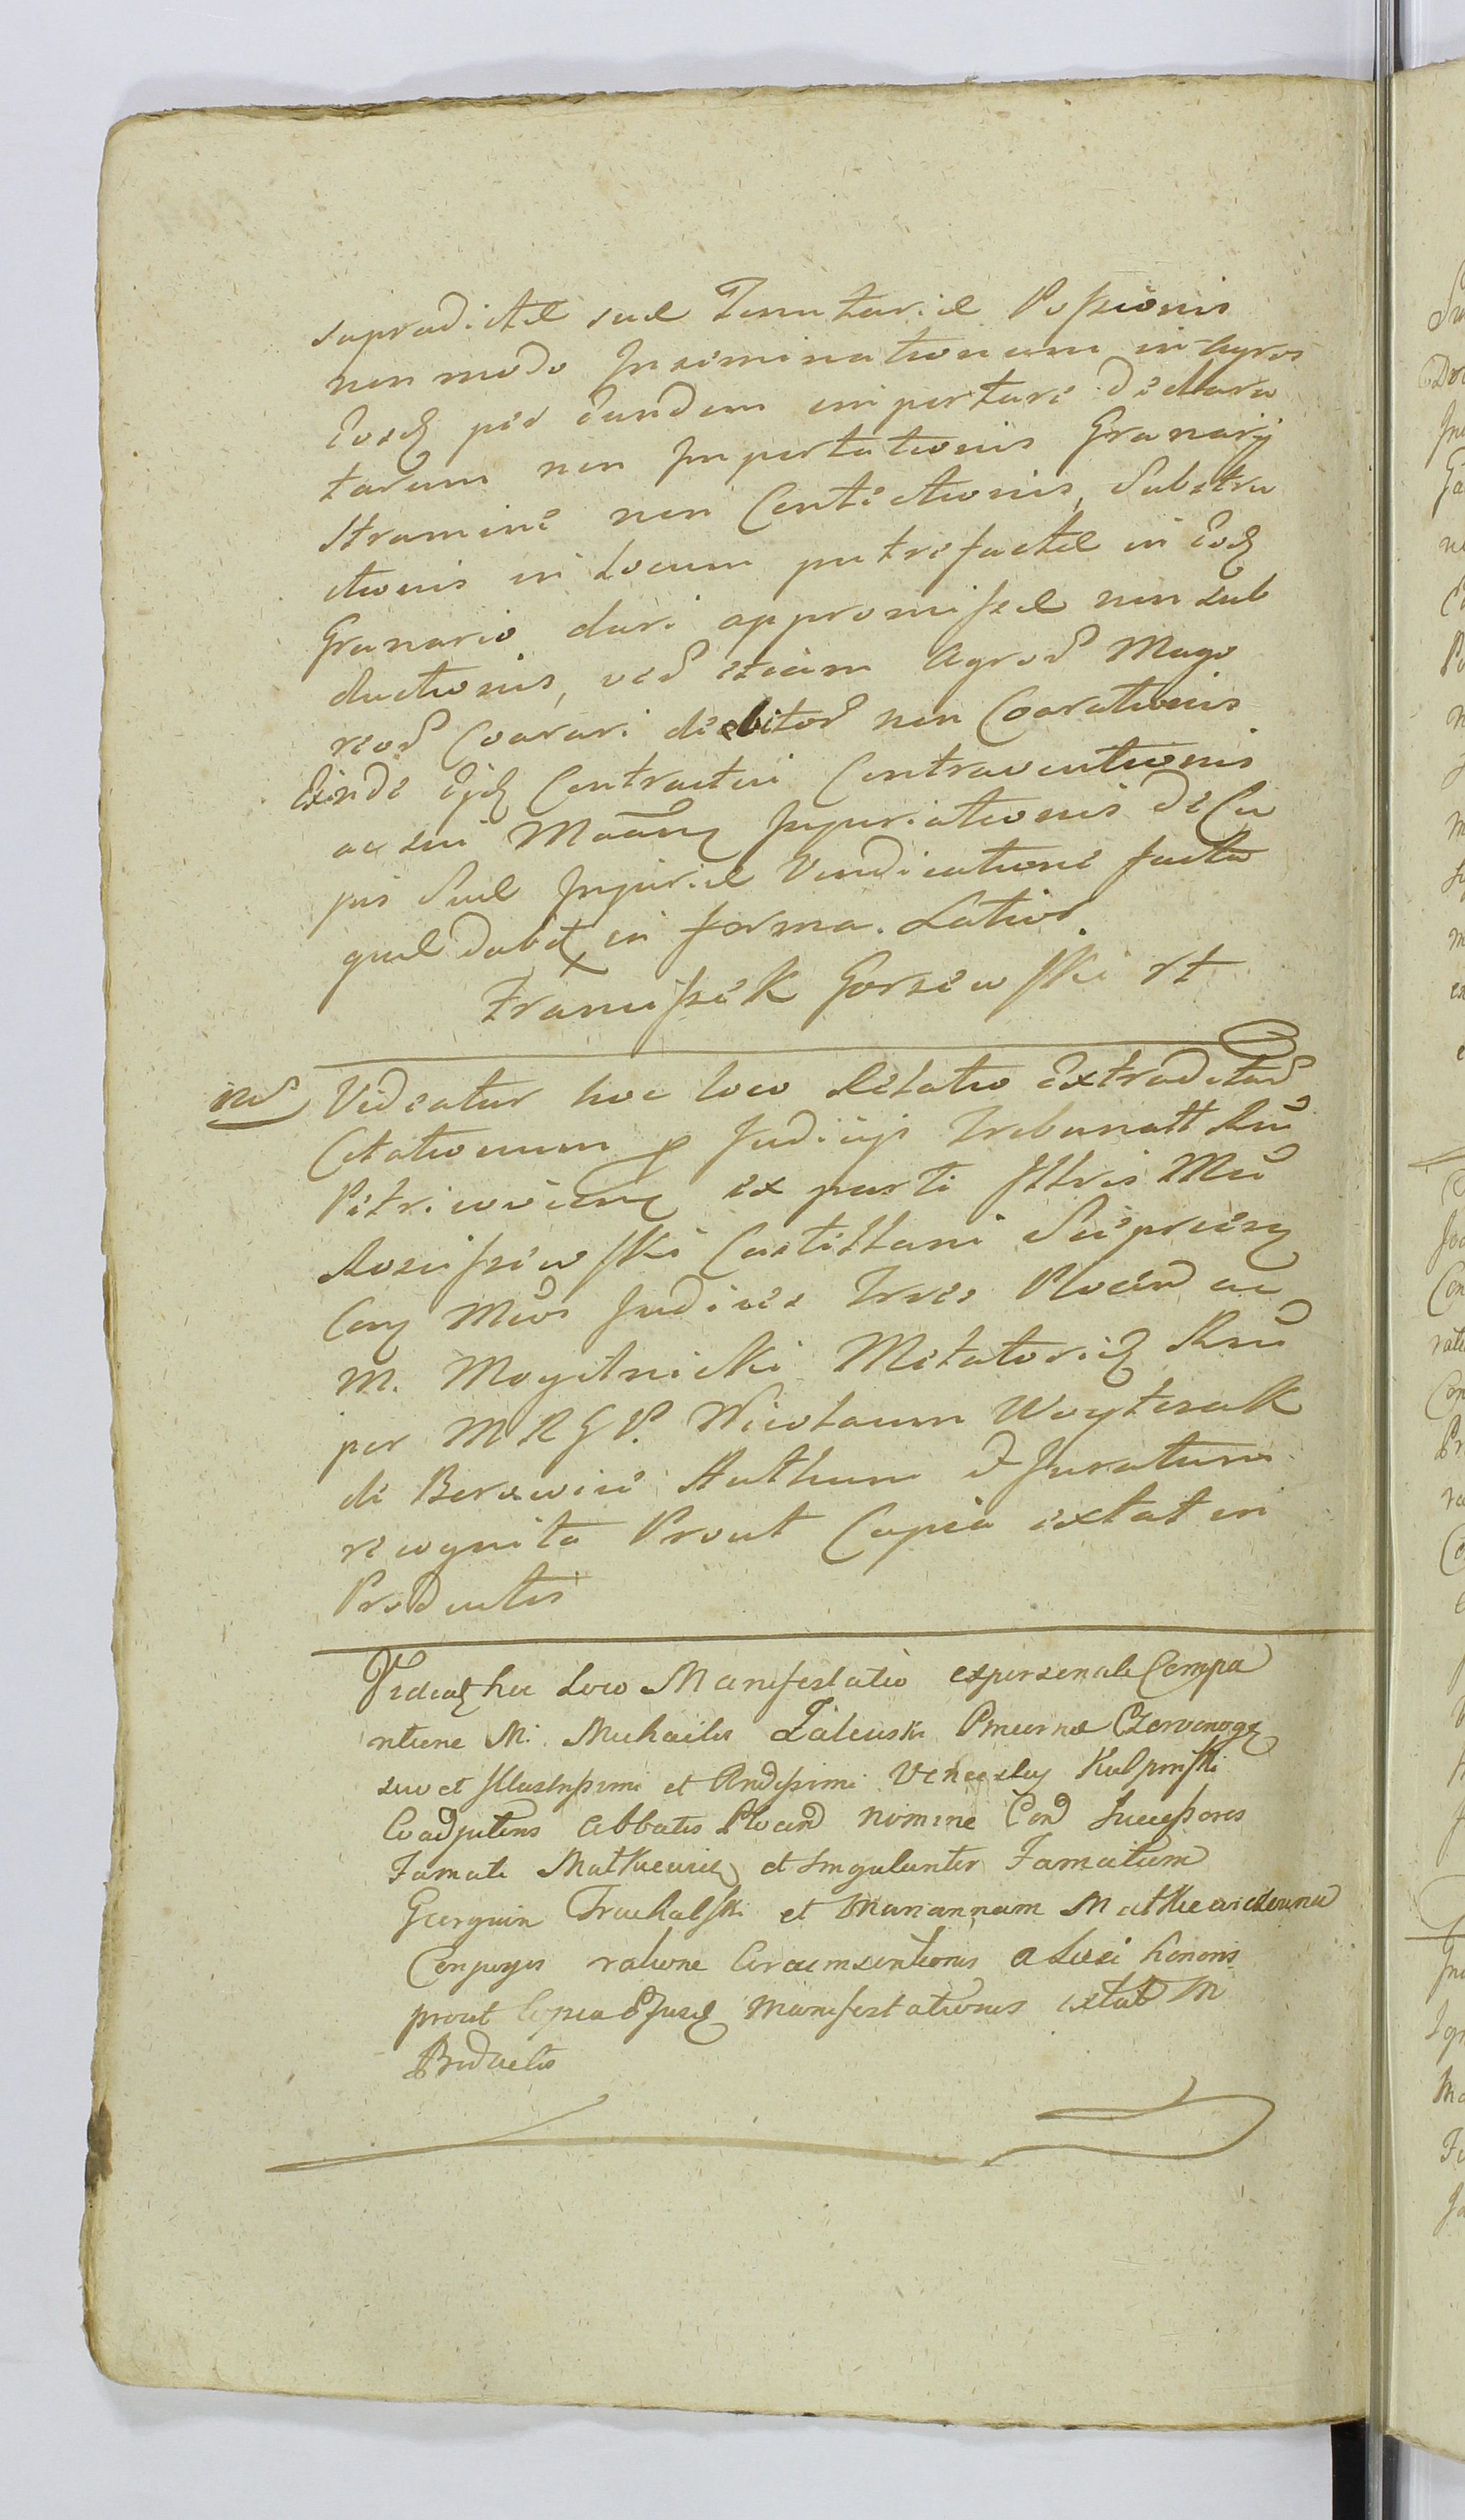 supradictæ suæ Tenutariæ Possionis
non modo Inseminationum in agros
Eosq per Eundem importari declara
tarum non Importationis Granarij
Stramine non Contectionis, Substru
ctionis in Locum putrefactæ in Eoq
Granario dari appromissæ non sub
ductionis, ver etiam Agror Mago
reor Coarari debitor non Coarationis
Exinde Ejq Contractui Contraventionis
ac sui Mdang Injuriationis de Cu
jus Suæ Injuriæ Vendicatione facta
quæ dabit in forma. Latior.
Francissek Gorzewski rt
ind Videatur hoc loco Relatio Extraditar
Citationum p Judicijs Tribunalt Rni
Petricovien ex parte Jllris Mci
Rosciszewski Castellani Sieprcien
Con Mcos Judices Trres Plocen ac
M. Mogilnicki Metatoriq Rni
per M R G P. Nicolaum Woytczak
de Borowice Authum et Juratum
recognita Prout Copia extat in
Productis
Videatq hic Loco Manifestatio expersonali Compa
ritione M. Michaelis Zaleuski Pncernæ Czerwonog
suo et Jllustrissimi et Rndissimi Venceslaj Kulpinski
Coadjutoris Abbatis Plocen nomine Con Successores
Famati Matkiewicz et singulariter Famatum
Georgium Truchalski et Mariannam Matkiewiczowna
Conjuges ratione Circumscriptionis a Læsi honoris
prout Copia Ejusq Manifestationis extat in
Productis